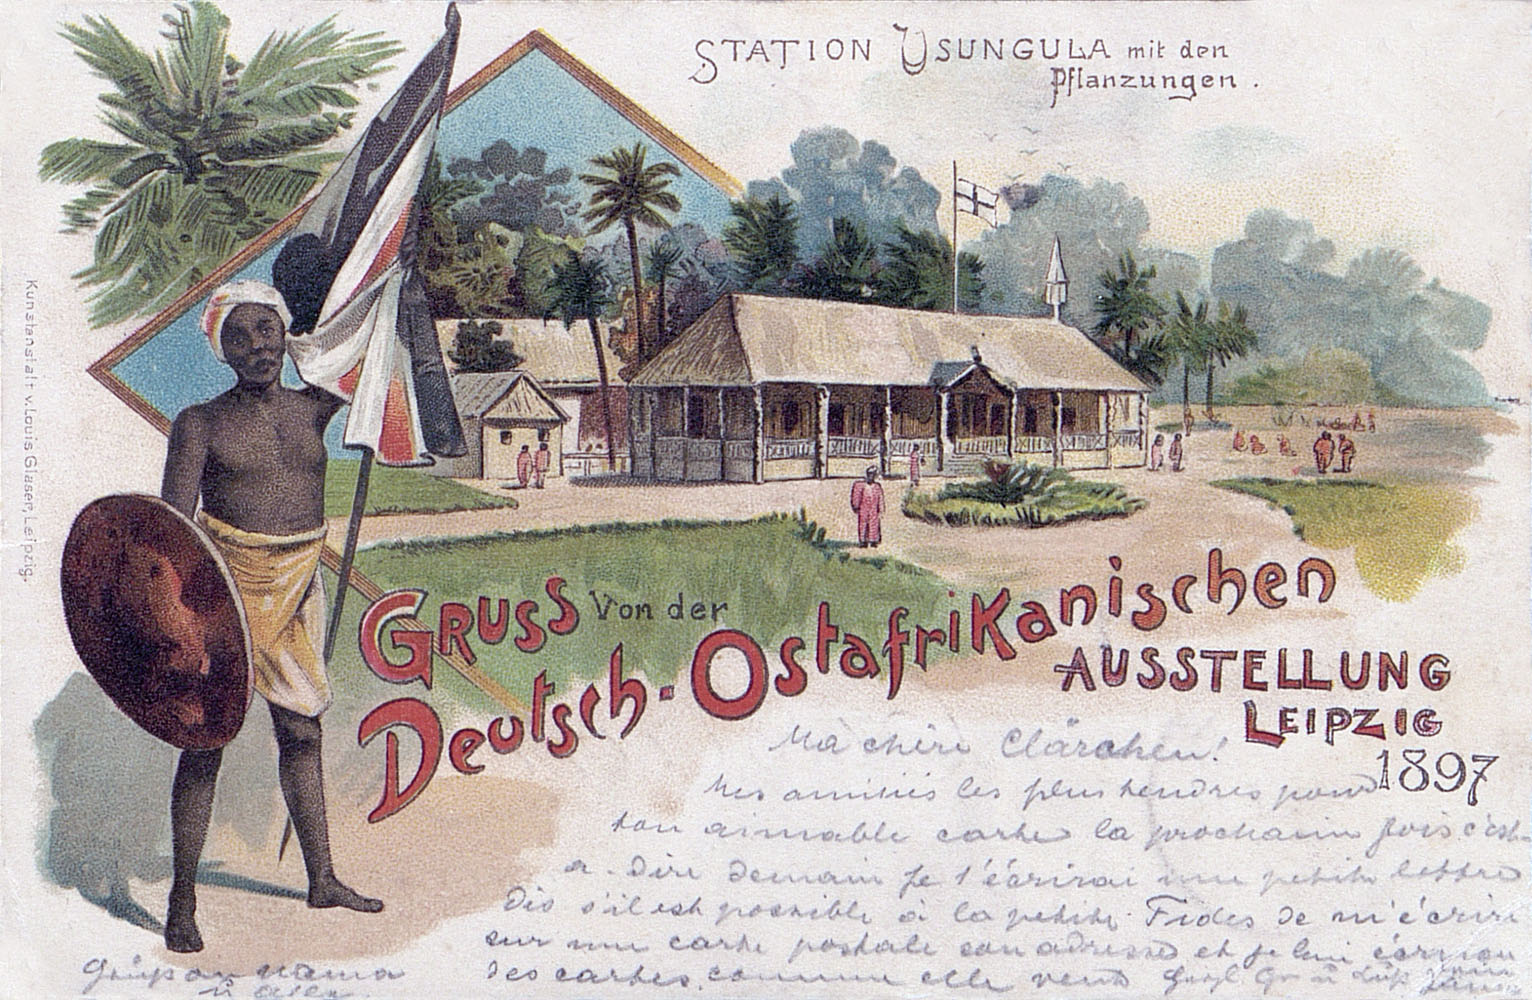 STATION USUNGULA mit den
Pflanzungen.
Kunstanstalt v. Louis Glaser, Leipzig.
GRUSS von der
Deutsch-Ostafrikanischen
AUSSTELLUNG
LEIPZIG
1897
Ma chère Clärchen!
Mes amitiés les plus tendres pour
ton aimable carte la prochain fois c'est-
a-dire demain je t'écrirai une petite lettre
Dis s'il est possible à la petite Fides de m'écrire
sur une carte postale son adresse et je lui
des cartes comme elle veut
Mama